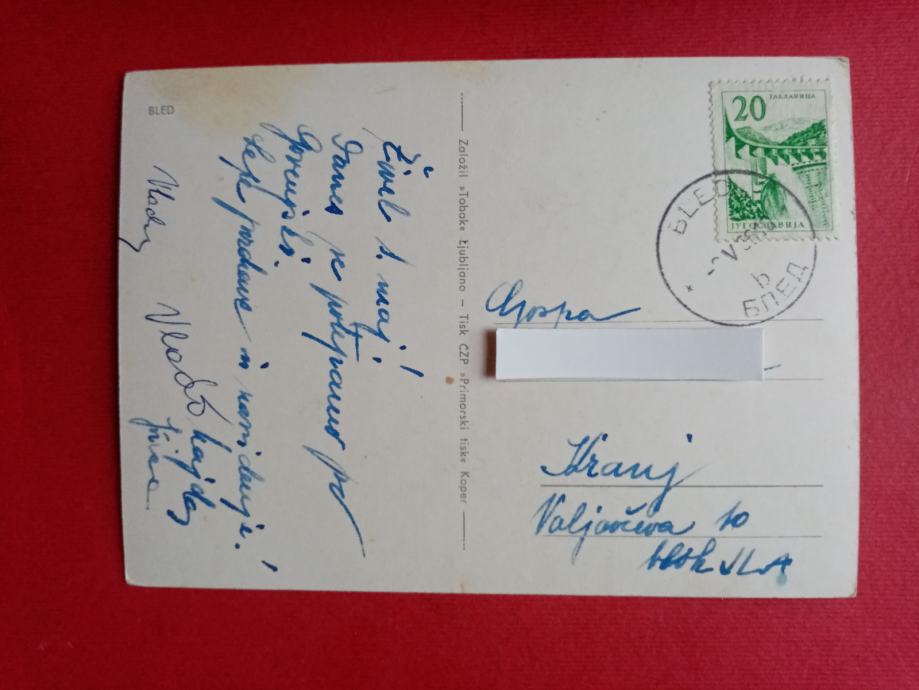 BLED
Živel 1. maj!
Danes se potepamo po
Gorenjski
Lep pozdrav in nasvidenje!
Vlado
Založil »Tobak« Ljubljana — Tisk ČZP »Primorski tisk« Koper
20
ЈАБЛАНИЦА
JUGOSLAVIJA
BLED
V
b
БЛЕД
Gospa
Kranj
Valjavčeva 10
blok VI. A